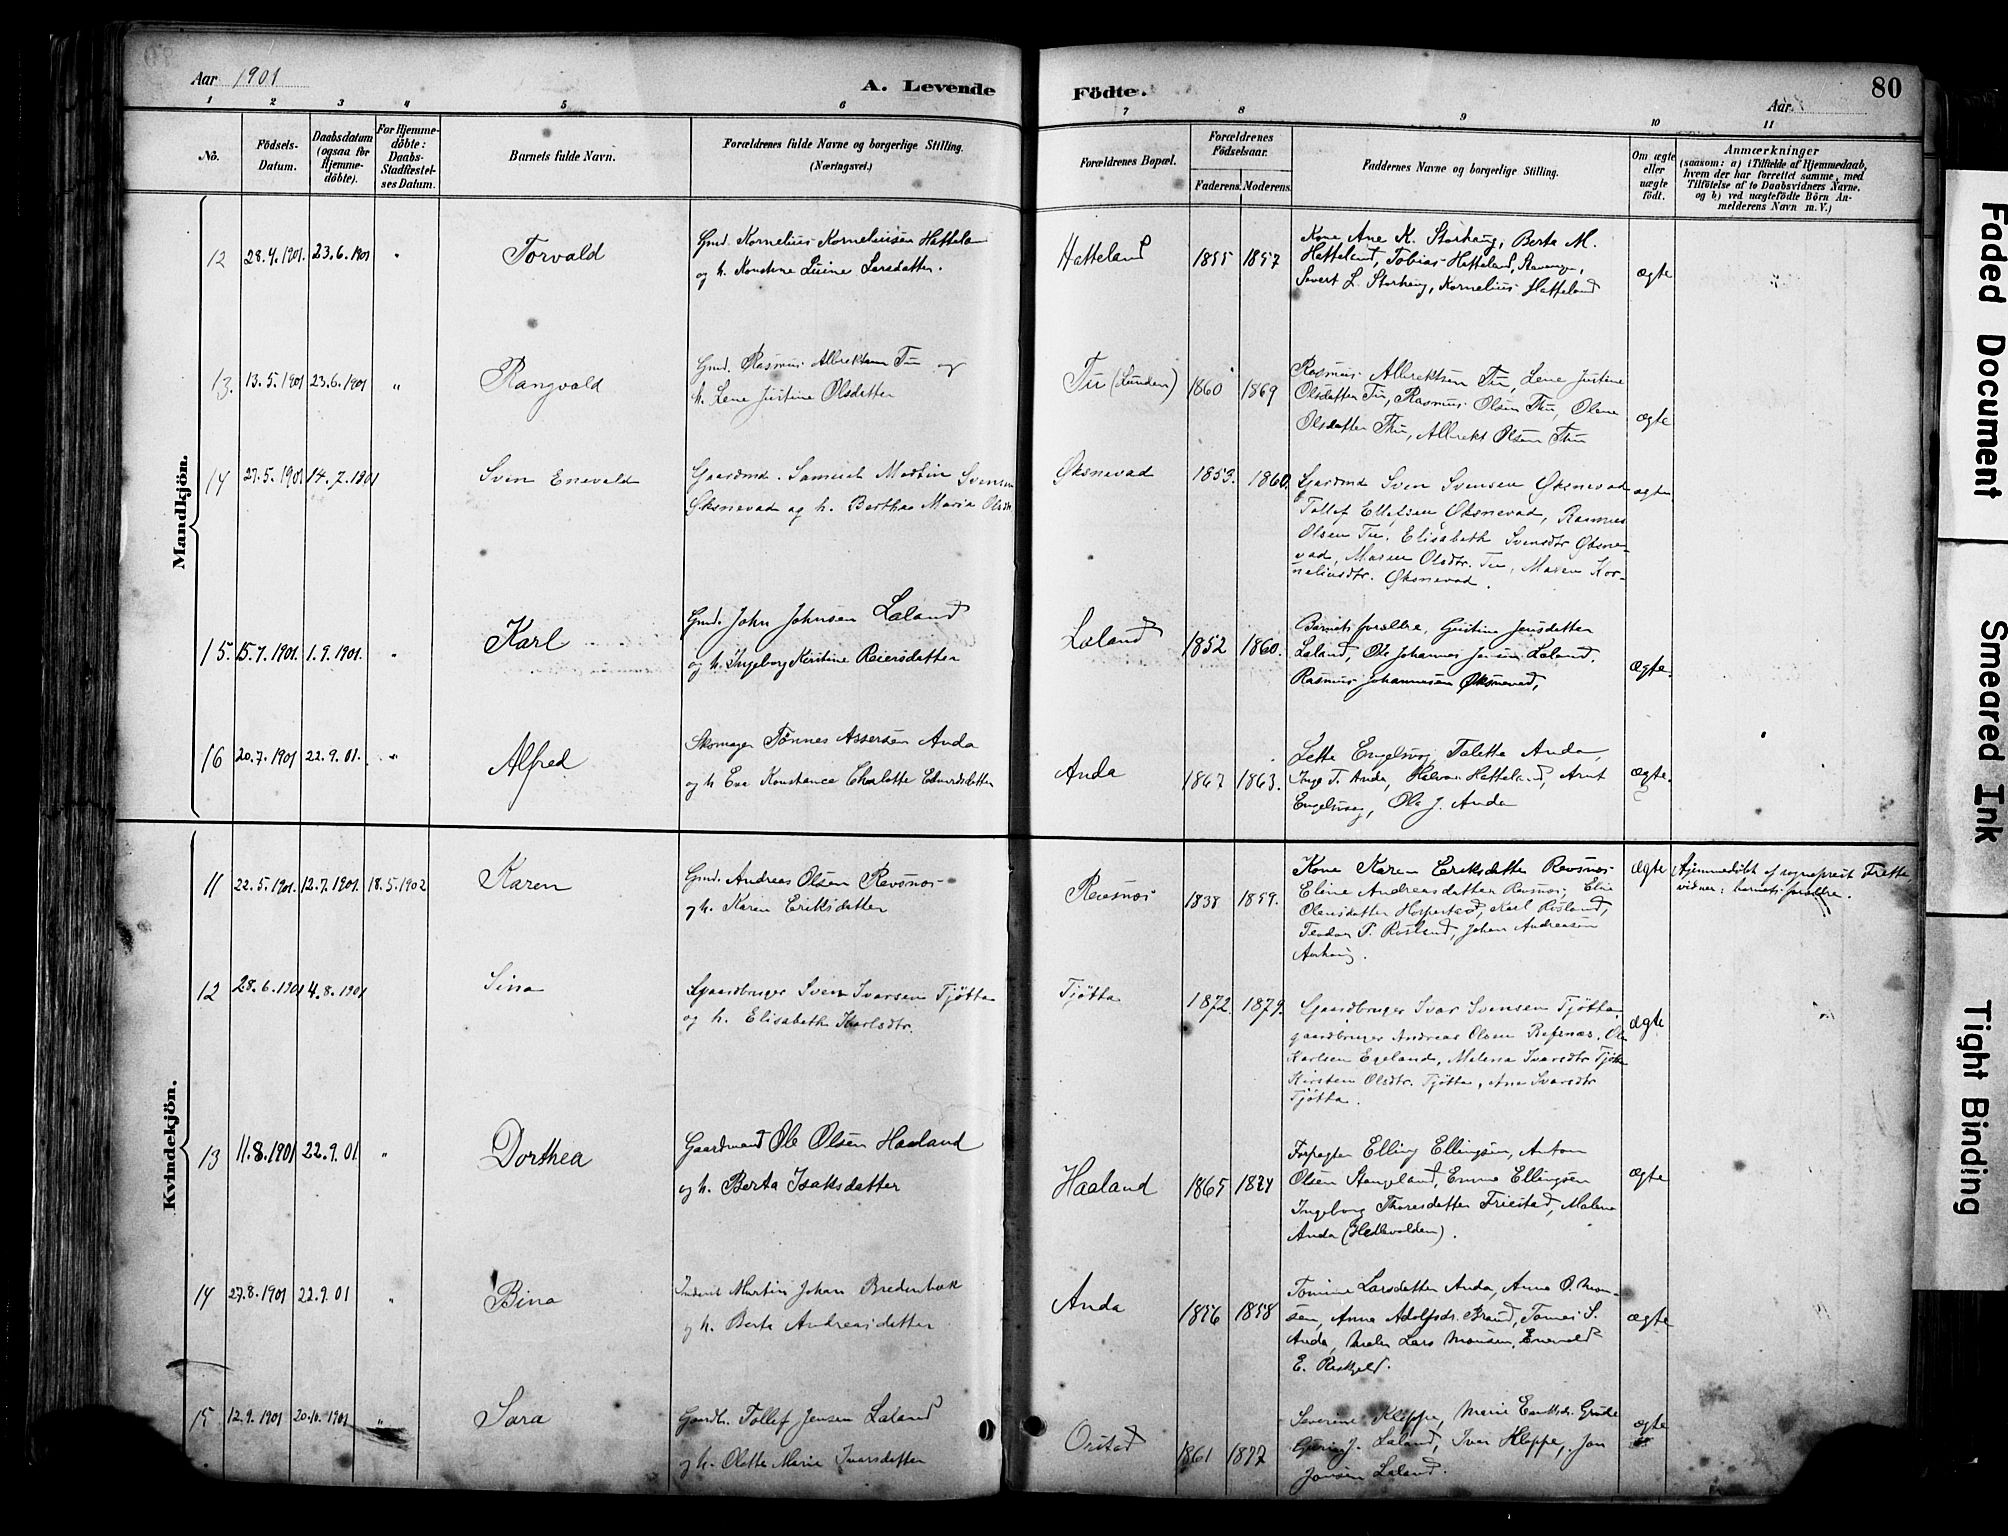 Aar 1901
A. Levende Födte.
Aar.
80
1 2 3 4 5 6 7 8 9 10 11
No.
Födsels-
Datum.
Daabsdatum
(ogsaa for
Hjemme-
döbte).
For Hjemme-
döbte:
Daabs-
Stadfæstel-
ses Datum.
Barnets fulde Navn.
Forældrenes fulde Navne og borgerlige Stilling.
(Næringsvei.)
Forældrenes Bopæl.
Forældrenes
Födselsaar.
Faderens. Moderens.
Faddernes Navne og borgerlige Stilling.
Om ægte
eller
uægte
födt.
Anmærkninger
(saasom: a) i Tilfælde af Hjemmedaab,
hvem der har forrettet samme, med
Tilföielse af to Daabsvidners Navne.
og b) ved uægtefödte Börn An-
melderens Navn m. V.)
Mandkjön.
12 28.4.1901. 23.6.1901 " Torvald
Gmd. Kornelius Korneliusen Hattela
og h. Konstine Luine Larsdatter.
Hatteland 1855 1857
Kone Ane K. Storhaug, Berta M.
Hatteland, Tobias Hatteland, Stavanger,
Sivert L. Storhaug, Kornelius Hatteland
ægte
13. 13.5.1901 23.6.1901 " Rangvald
Gmd. Rasmus Albrektsen Tu og
h. Lene Justine Olsdatter
Tu (Lunden) 1860 1869
Rasmus Albrektsen Tu, Lene Justine
Olsdatter Tu, Rasmus Olsen Thu, Olene
Olsdatter Thu, Albrekt Olsen Thu
ægte
14 27.5.1901 14.7.1901 Sven Enevald
Gaardmd. Samuel Martin Svensen
Øksnevad og h. Berthae Maria Olsdtr
Øksnevad 1853. 1860.
Gaardmd Sven Svensen Øksnevad
Tollef Ellefsen Øksnevad, Rasmus
Olsen Tu, Elisabeth Svensdtr Øksne-
vad, Maren Olsdtr. Tu, Maren Kor-
neliusdtr. Øksnevad.
ægte
15. 15.7.1901. 1.9.1901. " Karl
Gmd. John Johnsen Laland
og h. Ingeborg Kirstine Reiersdatter
Laland 1852 1860.
Barnets forældre, Gustine Jensdatter
Laland, Ole Johannes Jensen Laland,
Rasmus Johannesen Øksnevad,
ægte.
16 20.7.1901 22.9.01. " Alfred
Skomager Tønnes Assersen Anda
og h Eva Konstance Charlotte Edvardsdatter
Anda 1867 1863.
Lette Engelsvog, Taletta Anda,
Inge T. Anda, Halvor Hatteland, Arnt
Engelsvog, Ole J. Anda
ægte.
Kvindekjön.
11 22.5.1901. 12.7.1901. 18.5.1902 Karen
Gmd. Andreas Olsen Revsnes
og h. Karen Eriksdatter
Revsnes 1838 1859.
Kone Karen Eriksdatter Revsnes
Eline Andreasdatter Revsnes, Elie
Olausdatter Horpestad, Karl Risland,
Teodor P. Rosland, Johan Andreasen
ægte
Hjemmedöbt af sogneprest Frette,
vidner: barnets forældre.
12 28.6.1901 4.8.1901 Sina
Gaardbruger Sven Ivarsen Tjøtta
og h. Elisabeth Karlsdtr.
Tjøtta 1872. 1879.
Gaardbruger Ivar Svensen Tjøtta,
gaardbruger Andreas Olsen Refsnæs, Ole
Karlsen Egeland, Malena Ivarsdtr Tjøtta
Kirsten Olsdtr. Tjøtta, Ane Ivarsdtr
Tjøtta.
ægte
13 11.8.1901 22.9.01 " Dorthea
Gaardmand Ole Olsen Haaland
og h. Berta Isaksdatter
Haaland 1865 1874
Forpagter Elling Ellingsen, Anton
Olsen Stangeland, Emma Ellingsen
Ingeborg Thoresdatter Friestad, Malena
Anda (Hedlevolden).
ægte
14 27.8.1901 22.9.01 " Bina
Inderst Martin Johan Bredenbæk
og h. Berta Andreasdatter
Anda 1856 1858
Tomine Larsdatter Anda, Anna O. Mon-
sen, Anna Adolfsdr. Braud, Tønnes S.
Anda, Maler Lars Monsen, Enevald
E. Reskjeld.
ægte
15 12.9.1901 20.10.1901 " Sara
Gaardb. Tollef Jensen Laland
og h. Olette Marie Ivarsdatter
Orstad 1861 1877
Severine Kleppe, Marie Eriksdr. Grude
Guri J. Laland, Iver Kleppe, Jon
Jonsen Laland.
ægte
Faded Document
Smeared Ink
Tight Binding